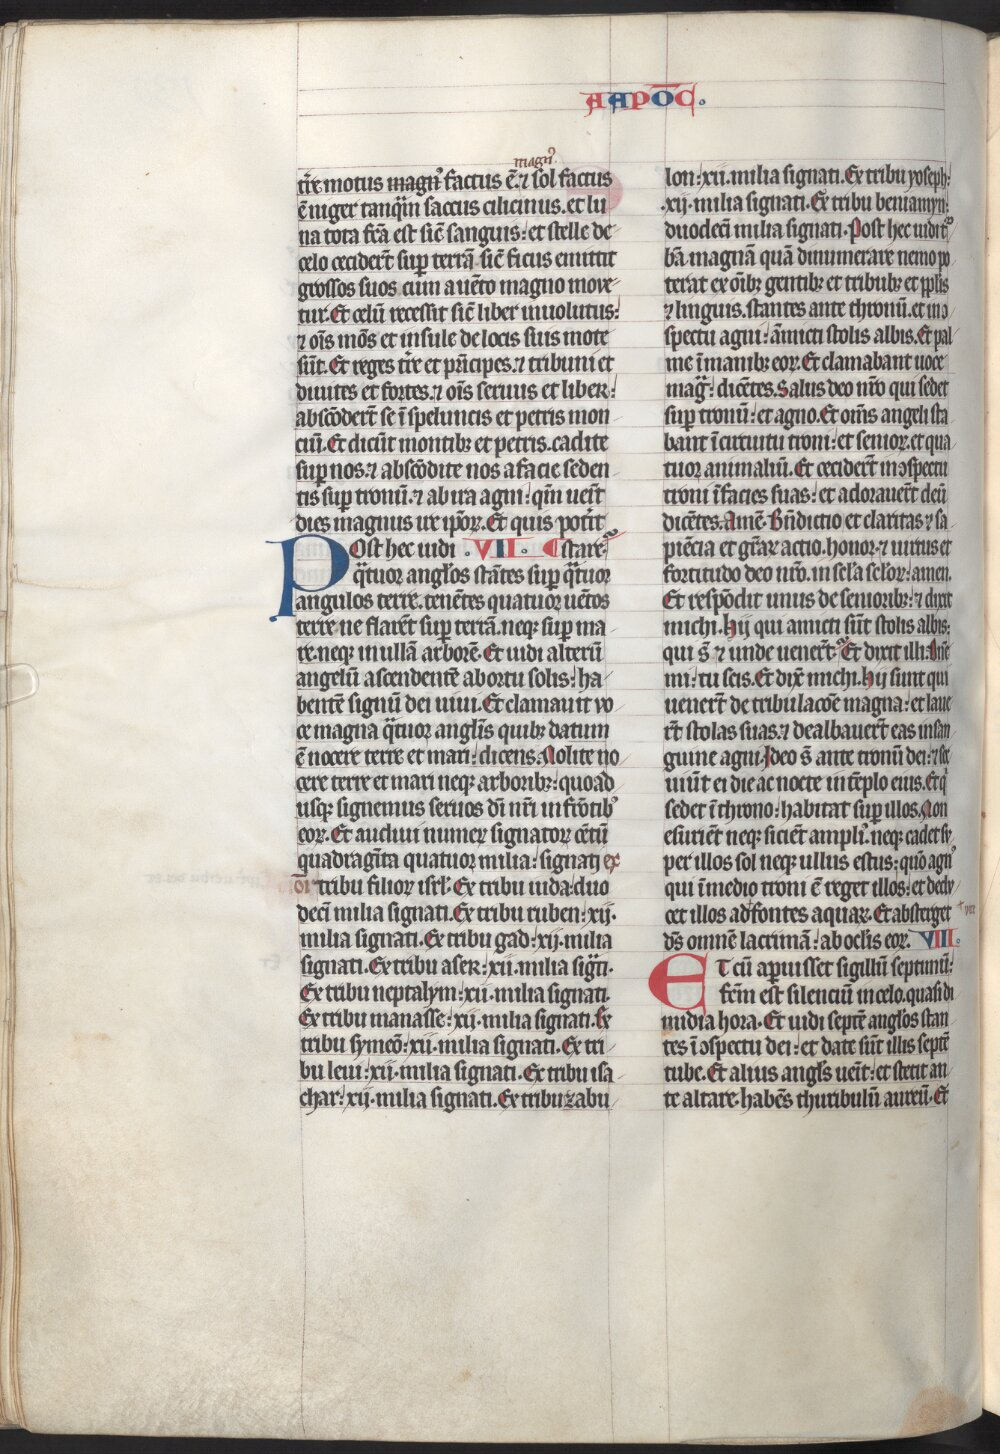 AAPOC̄.
magnꝰ
tr̄e motus magnꝰ factus ē. ⁊ sol factus
ē niger tanqͣm saccus cilicinus. et lu
na tota fc̄a est sic̄ sanguis: et stelle de
celo cecider̄t sup̱ terrā. sic̄ ficus emittit
grossos suos cum a uēto magno moue
tur. Et celū recessit sic̄ liber inuolutus:
⁊ oīs mōs et insule de locis suis mote
sūt. Et reges tr̄e et pn̄cipes. ⁊ tribuni et
diuites et fortes. ⁊ oīs seruus et liber:
abscōder̄t se ī speluncis et petris mon
ciū. Et dicūt montibꝫ et petris. cadite
sup̱ nos. ⁊ abscōdite nos a facie seden
tis sup̱ tronū. ⁊ ab ira agni: qm̄ uen̄t
dies magnus ire ip̄oꝝ. Et quis potīt
Post hec uidi .VII. stare.
qͣtuor angl̄os stātes sup̱ qͣtuor
angulos terre. tenētes quatuor uētos
terre ne flarēt sup̱ terrā. neqꝫ sup̱ ma
re. neqꝫ in ullā arborē. Et uidi alterū
angelū ascendentē ab ortu solis: ha
bentē signū dei uiui. Et clamauit uo
ce magna qͣtuor angl̄is quibꝫ datum
ē nocere terre et mari: dicens. Nolite no
cere terre et mari neqꝫ arboribꝫ: quoad
usqꝫ signemus seruos dī nr̄i in frōtibꝰ
eoꝝ. Et audiui numeꝝ signatoꝝ cētū
quadragīta quatuor milia: signati ex
oī tribu filioꝝ isrl̄. Ex tribu iuda: duo
decī milia signati. Ex tribu ruben: xij.
milia signati. Ex tribu gad: xij. milia
signati. Ex tribu aser: xii. milia sigͣti.
Ex tribu neptalym: xii. milia signati.
Ex tribu manasse: xii. milia signati. Ex
tribu symeō: xii. milia signati. Ex tri
bu leui: xii. milia signati. Ex tribu isa
char: xij. milia signati. Ex tribu zabu
lon: xii. milia signati. Ex tribu yoseph:
.xij. milia signati. Ex tribu beniamyn:
duodecī milia signati. Post hec uidi tꝰ
bā magnā quā dinumerare nemo po
terat ex oībꝫ gentibꝫ et tribubꝫ et ppl̄is
⁊ linguis. stantes ante thronū. et in ꝯ
spectu agni: amicti stolis albis. Et pal
me ī manibꝫ eoꝝ. Et clamabant uoce
magͣ: dicētes. Salus deo nr̄o qui sedet
sup̱ tronū: et agno. Et om̄s angeli sta
bant ī circuitu troni: et senioꝝ. et qua
tuor animaliū. Et cecider̄t in ꝯspectu
troni ī facies suas: et adorauer̄t deū
dicētes. Amē. Bn̄dictio et claritas ⁊ sa
piēcia et gr̄aꝝ actio. honor. ⁊ uirtus et
fortitudo deo nr̄o. in sc̄la sc̄loꝝ: amen.
Et respōdit unus de senioribꝫ: ⁊ dixit
michi. Hij qui amicti sūt stolis albis:
qui s̄ ⁊ unde uenerūt. Et dixit illi: dn̄e
mi: tu scis. Et dix̄ michi. Hij sunt qui
uenerūt de tribulacōe magna: et laue
rūt stolas suas. ⁊ dealbauer̄t eas in san
guine agni. Ideo s̄ ante tronū dei: ⁊ ser
uiūt ei die ac nocte in tēplo eius. Et qͥ
sedet ī throno: habitat sup̱ illos. Non
esuriēt neqꝫ sicient ampliꝰ. neqꝫ cadet su
per illos sol neqꝫ ullus estus: quō agnꝰ
qui ī medio troni ē reget illos: et dedu
cet illos ad fontes aquaꝝ. Et absterget
dꝭ omnē lacrimā: ab oclīs eoꝝ. VIII.
ET cū aperuisset sigillū septimū:
fc̄m est silenciū in celo. quasi di
midia hora. Et uidi septē angl̄os stan
tes ī ꝯspectu dei: et date sūt illis septē
tube. Et alius angl̄s uen̄t: et stetit an
te altare. habēs thuribulū aureū. Et